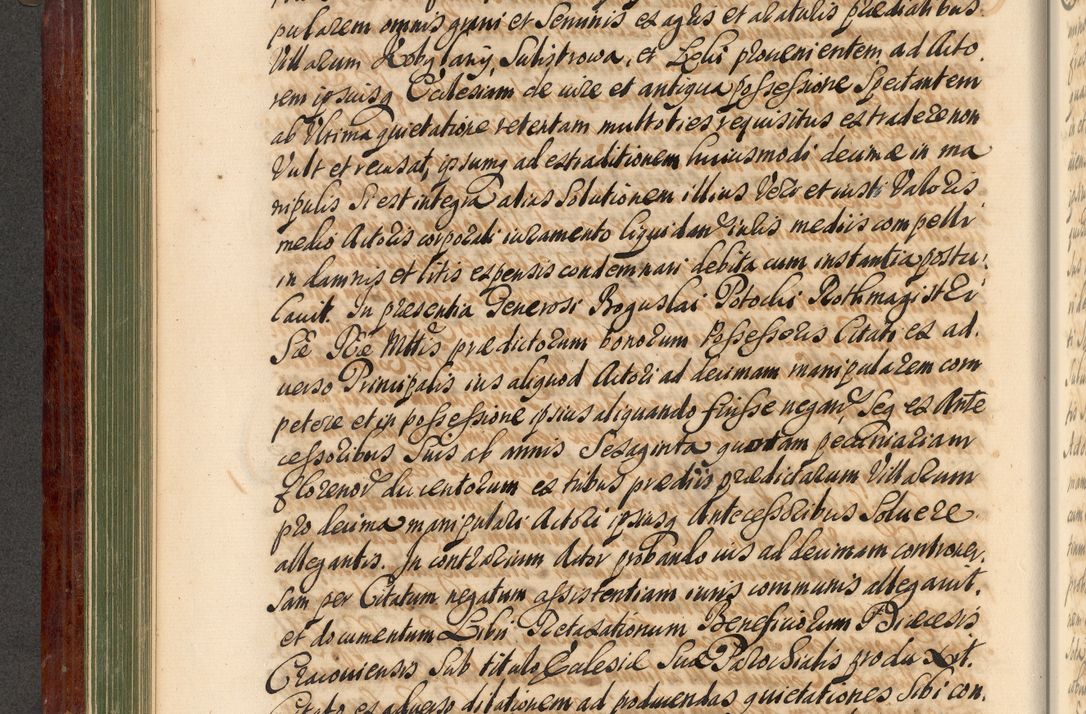 pularem omnis grani et Seminis ex agris et alatulis prædialibus
Villarum Kobylany, Sulistrowa, et Leki provenientem ad Acto.
rem ipsiusq Ecclesiam de iure et antiqua possessione Spectantem
ab Ultima quietatione retentam multoties requisitus extradere non
Vult et recusat, ipsumq ad extraditionem huiusmodi decimæ in ma
nipulis Si est integra alius Solutionem illius Veri et iusti Valoris
medio Actoris corporali iuramento liquidand Iuris mediis compelli
in damnis et litis expensis condemnari debita cum instantia postu:
lavit. In præsentia Generosi Boguslai Potocki Rothmagistri
Sæ Ræ Mttis prædictorum bonorum Possessoris Citati ex ad.
verso Principalis ius aliquod Actori ad decimam manipularem com
petere et in possessione ipsius aliquando fuisse negand Seq ex Ante
cessoribus Suis ab annis Sexaginta quotam pecuniariam
florenor ducentorum ex tribus prædiis prædictarum Villarum
pro decima manipulari Actori ipsiusq Antecessoribus Soluere
allegantis. In contrarium Actor probando ius ad decimam controver.
sam per Citatum negatum assistentiam iuris communis allegavit.
et documentum Libri Retaxationum Beneficiorum Diæcesis
Cracoviensis Sub titulo Ecclesiæ Suæ Parochialis produxit.
Citato ex adverso dilationem ad producendas quietationes Sibi con.